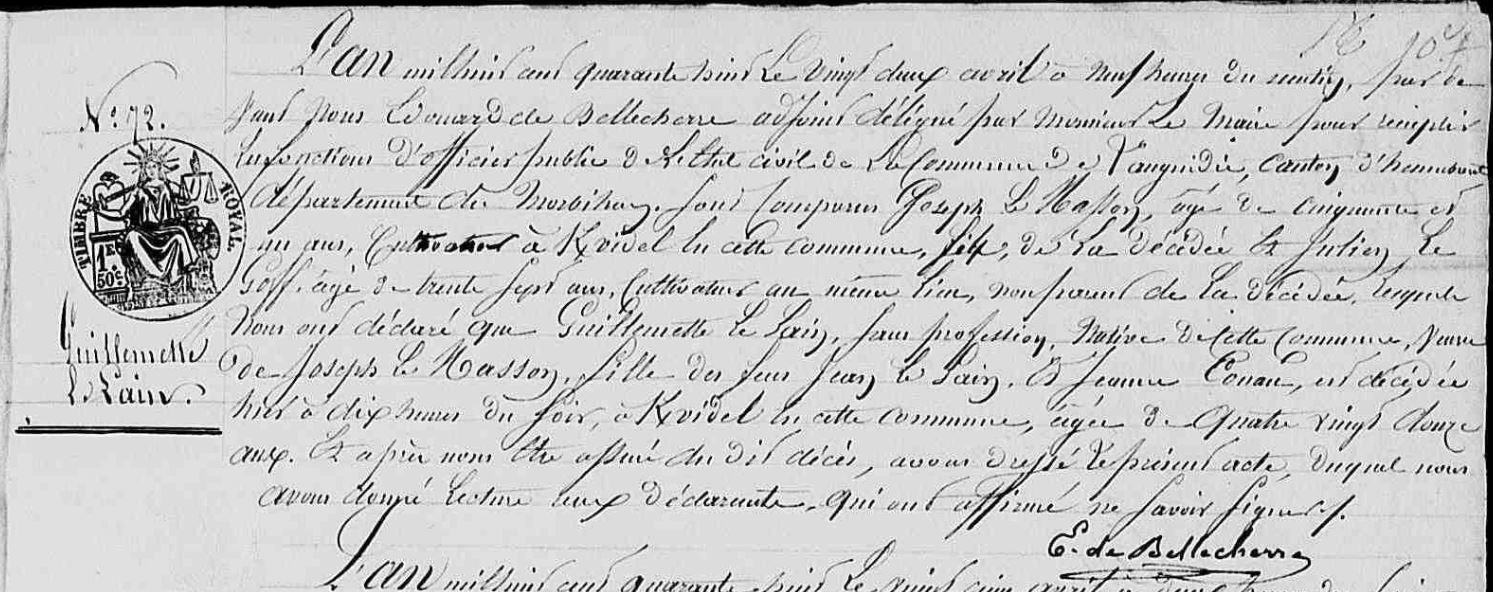 N.° 72.
TIMBRE ROYAL.
1F.
50c
Guillemette
Le Lain.
L'an mil huit cent quarante huit Le vingt deux avril à neuf heures du matin, par de
vant Nous Edouard de Bellecherre adjoint délégué par Monsieur Le Maire pour remplir
les fonctions d'officier public de l'état civil de La Commune de Languidic, Canton d'hennebont
département du Morbihan. Sont Comparus Joseph Le Masson, âgé de cinquante et
un ans, Cultivateur à Kvidel en cette commune, fils, de La décédée Et Julien Le
Goff, âgé de trente sept ans, Cultivateur au même lieu, non parent de La décédée, lesquels
Nous ont déclaré que Guillemette Le Lain, sans profession, Native de Cette Commune, Veuve
de Joseph Le Masson, fille des feus Jean Le Lain, Et Jeanne Conan, est décédée
hier à dix heures du soir, à Kvidel en cette commune, âgée de Quatre vingt douze
ans. Et après nous être assuré du dit décès, avons dressé Le présent acte, duquel nous
avons donné Lecture aux déclarants, qui ont affirmé ne savoir signer./.
E. de Bellecherre
L'an mil huit cent quarante huit Le vingt cinq avril à